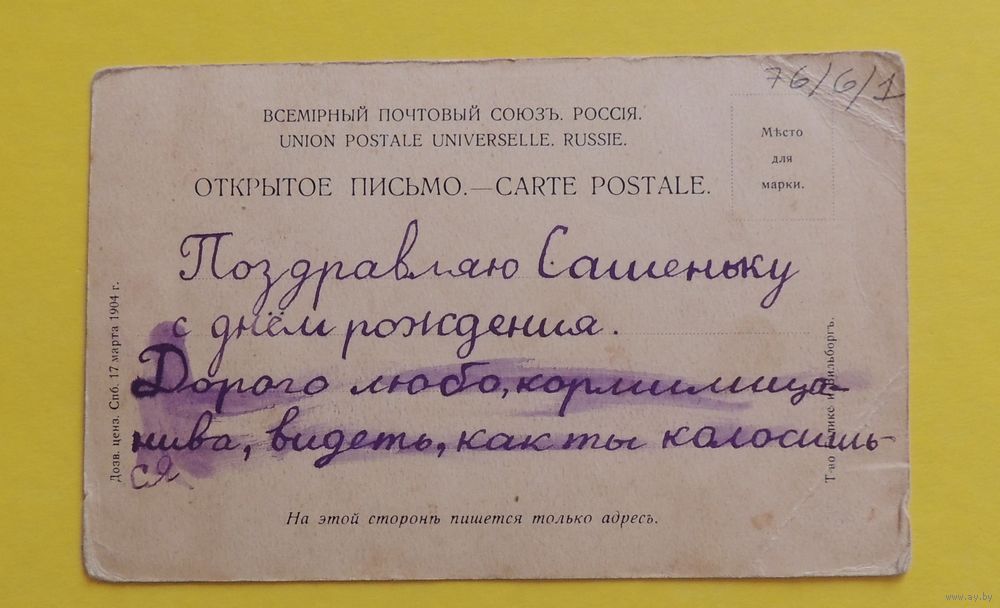 76/6/1
ВСЕМІРНЫЙ ПОЧТОВЫЙ СОЮЗЪ. РОССІЯ.
UNION POSTALE UNIVERSELLE. RUSSIE.
Мѣсто
для
марки.
ОТКРЫТОЕ ПИСЬМО.—CARTE POSTALE.
Поздравляю Сашеньку
с днём рождения.
Дорого любо, кормилица-
нива, видеть, как ты колосишь-
ся
На этой сторонѣ пишется только адресъ.
Дозв. ценз. Спб. 17 марта 1904 г.
Т-во и Вильборгъ.
www.ay.by